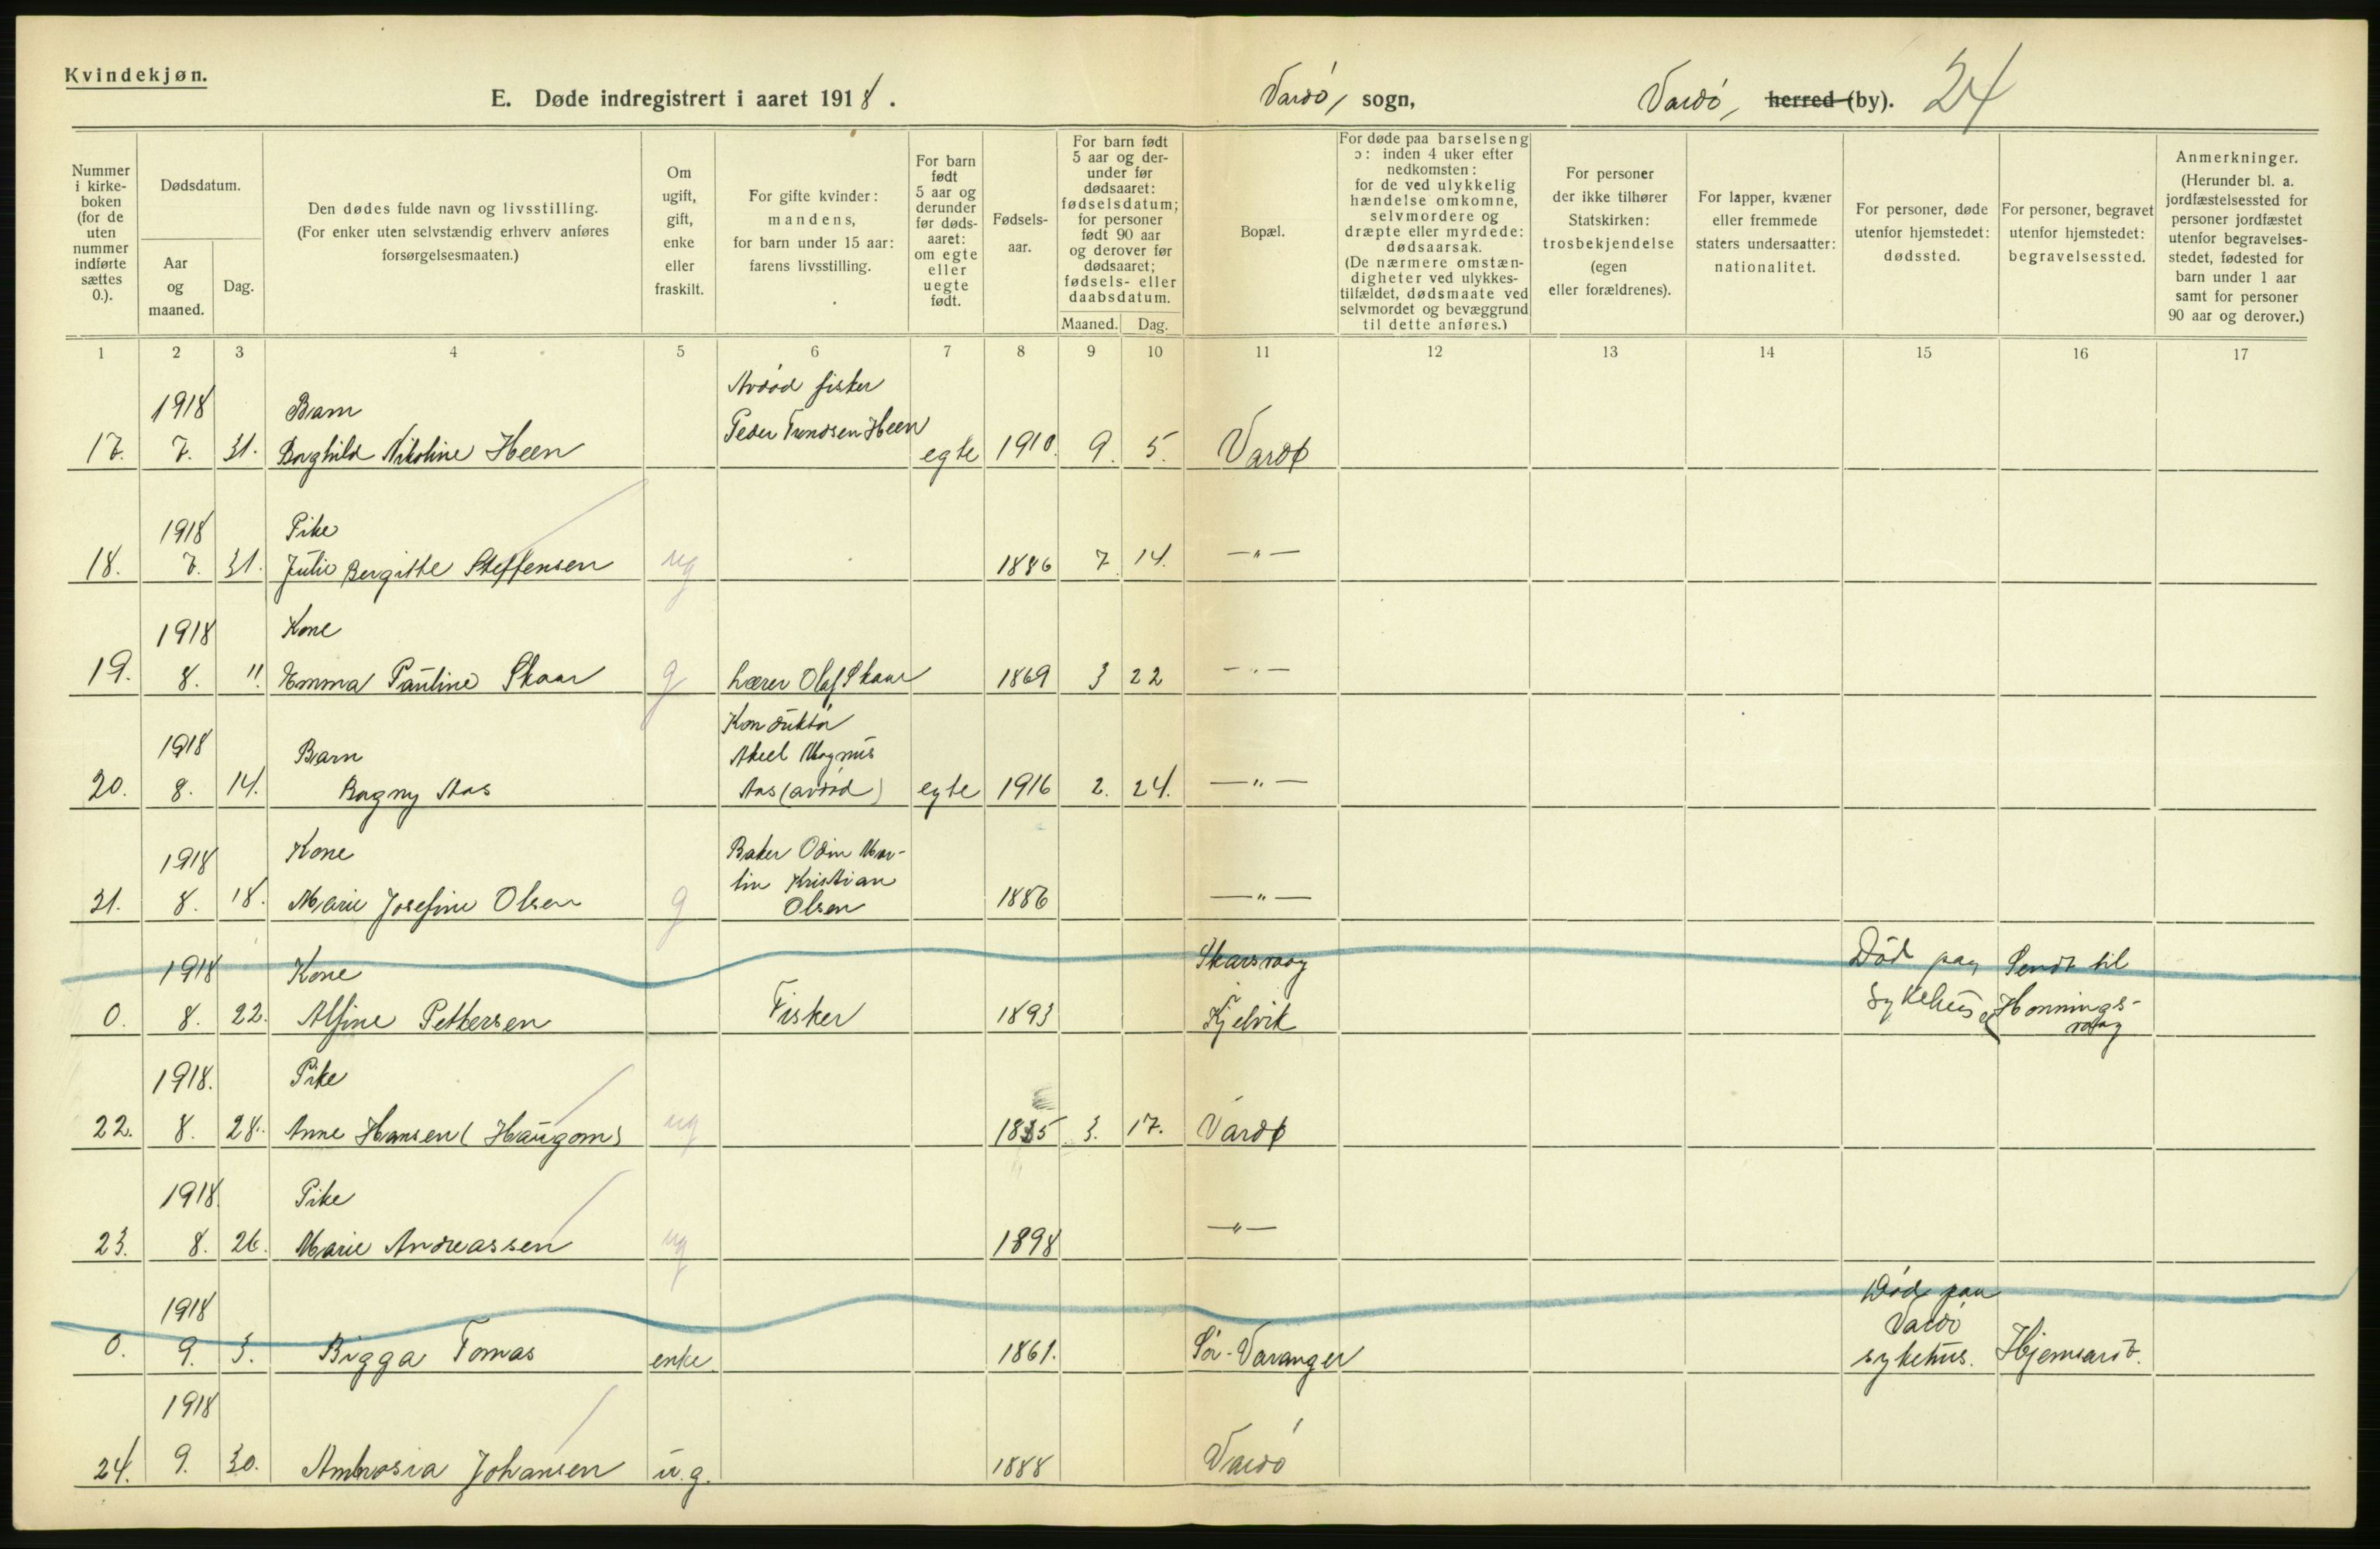 Kvindekjøn.
E. Døde indregistrert i aaret 1918.
Vardø, sogn,
Vardø, herred (by). 24
Nummer i kirke-boken (for de uten nummer indførte sættes 0.).
Dødsdatum.
Aar og maaned.
Dag.
Den dødes fulde navn og livsstilling.
(For enker uten selvstændig erhverv anføres forsørgelsesmaaten.)
Om ugift, gift, enke eller fraskilt.
For gifte kvinder: mandens, for barn under 15 aar: farens livsstilling.
For barn født 5 aar og derunder før døds-aaret: om egte eller uegte født.
Fødsels-aar.
For barn født 5 aar og der-under før dødsaaret: fødselsdatum; for personer født 90 aar og derover før dødsaaret; fødsels- eller daabsdatum.
Maaned. Dag.
Bopæl.
For døde paa barselseng ɔ: inden 4 uker efter nedkomsten: for de ved ulykkelig hændelse omkomne, selvmordere og dræpte eller myrdede: dødsaarsak. (De nærmere omstæn-digheter ved ulykkes-tilfældet, dødsmaate ved selvmordet og bevæggrund til dette anføres.)
For personer der ikke tilhører Statskirken: trosbekjendelse (egen eller forældrenes).
For lapper, kvæner eller fremmede staters undersaatter: nationalitet.
For personer, døde utenfor hjemstedet: dødssted.
For personer, begravet utenfor hjemstedet: begravelsessted.
Anmerkninger. (Herunder bl. a. jordfæstelsessted for personer jordfæstet utenfor begravelses-stedet, fødested for barn under 1 aar samt for personer 90 aar og derover.)
1 2 3 4 5 6 7 8 9 10 11 12 13 14 15 16 17
Avdød fisker
1918 Barn Peder Trondsen Heen
17. 7. 31. Borghild Nikoline Heen egte 1910. 9. 5. Vardø
1918 Pike
18. 7. 31. Julie Bergitte Steffensen ug 1886 7. 14. —"—
1918 Kone
19. 8. 11. Emma Pauline Skaar g Lærer Olaf Skaar 1869 3 22 —"—
Konduktør
1918 Barn Aksel Magnus
20. 8. 14. Bagny Aas Aas (avdød) egte 1916 2. 24. —"—
1918 Kone Baker Odin Mar-
tin Kristian
21. 8. 18. Marie Josefine Olsen g Olsen 1886 —"—
1918 Kone Skarsvaag Død paa Sendt til
0. 8. 22. Alfine Pettersen Fisker 1893 Kjelvik Sykehus Honnings-
vaag
1918. Pike
22. 8. 28. Anne Hansen (Haugom) ug 1835 3. 17. Vardø
1918 Pike
23. 8. 26. Marie Andreassen ug 1898 —"—
1918 Død paa
Vardø
0. 9. 3. Bigga Tomas enke. 1861. Sør-Varanger sykehus. Hjemsendt.
1918
24. 9. 30. Ambrosia Johansen u.g. 1888 Vardø